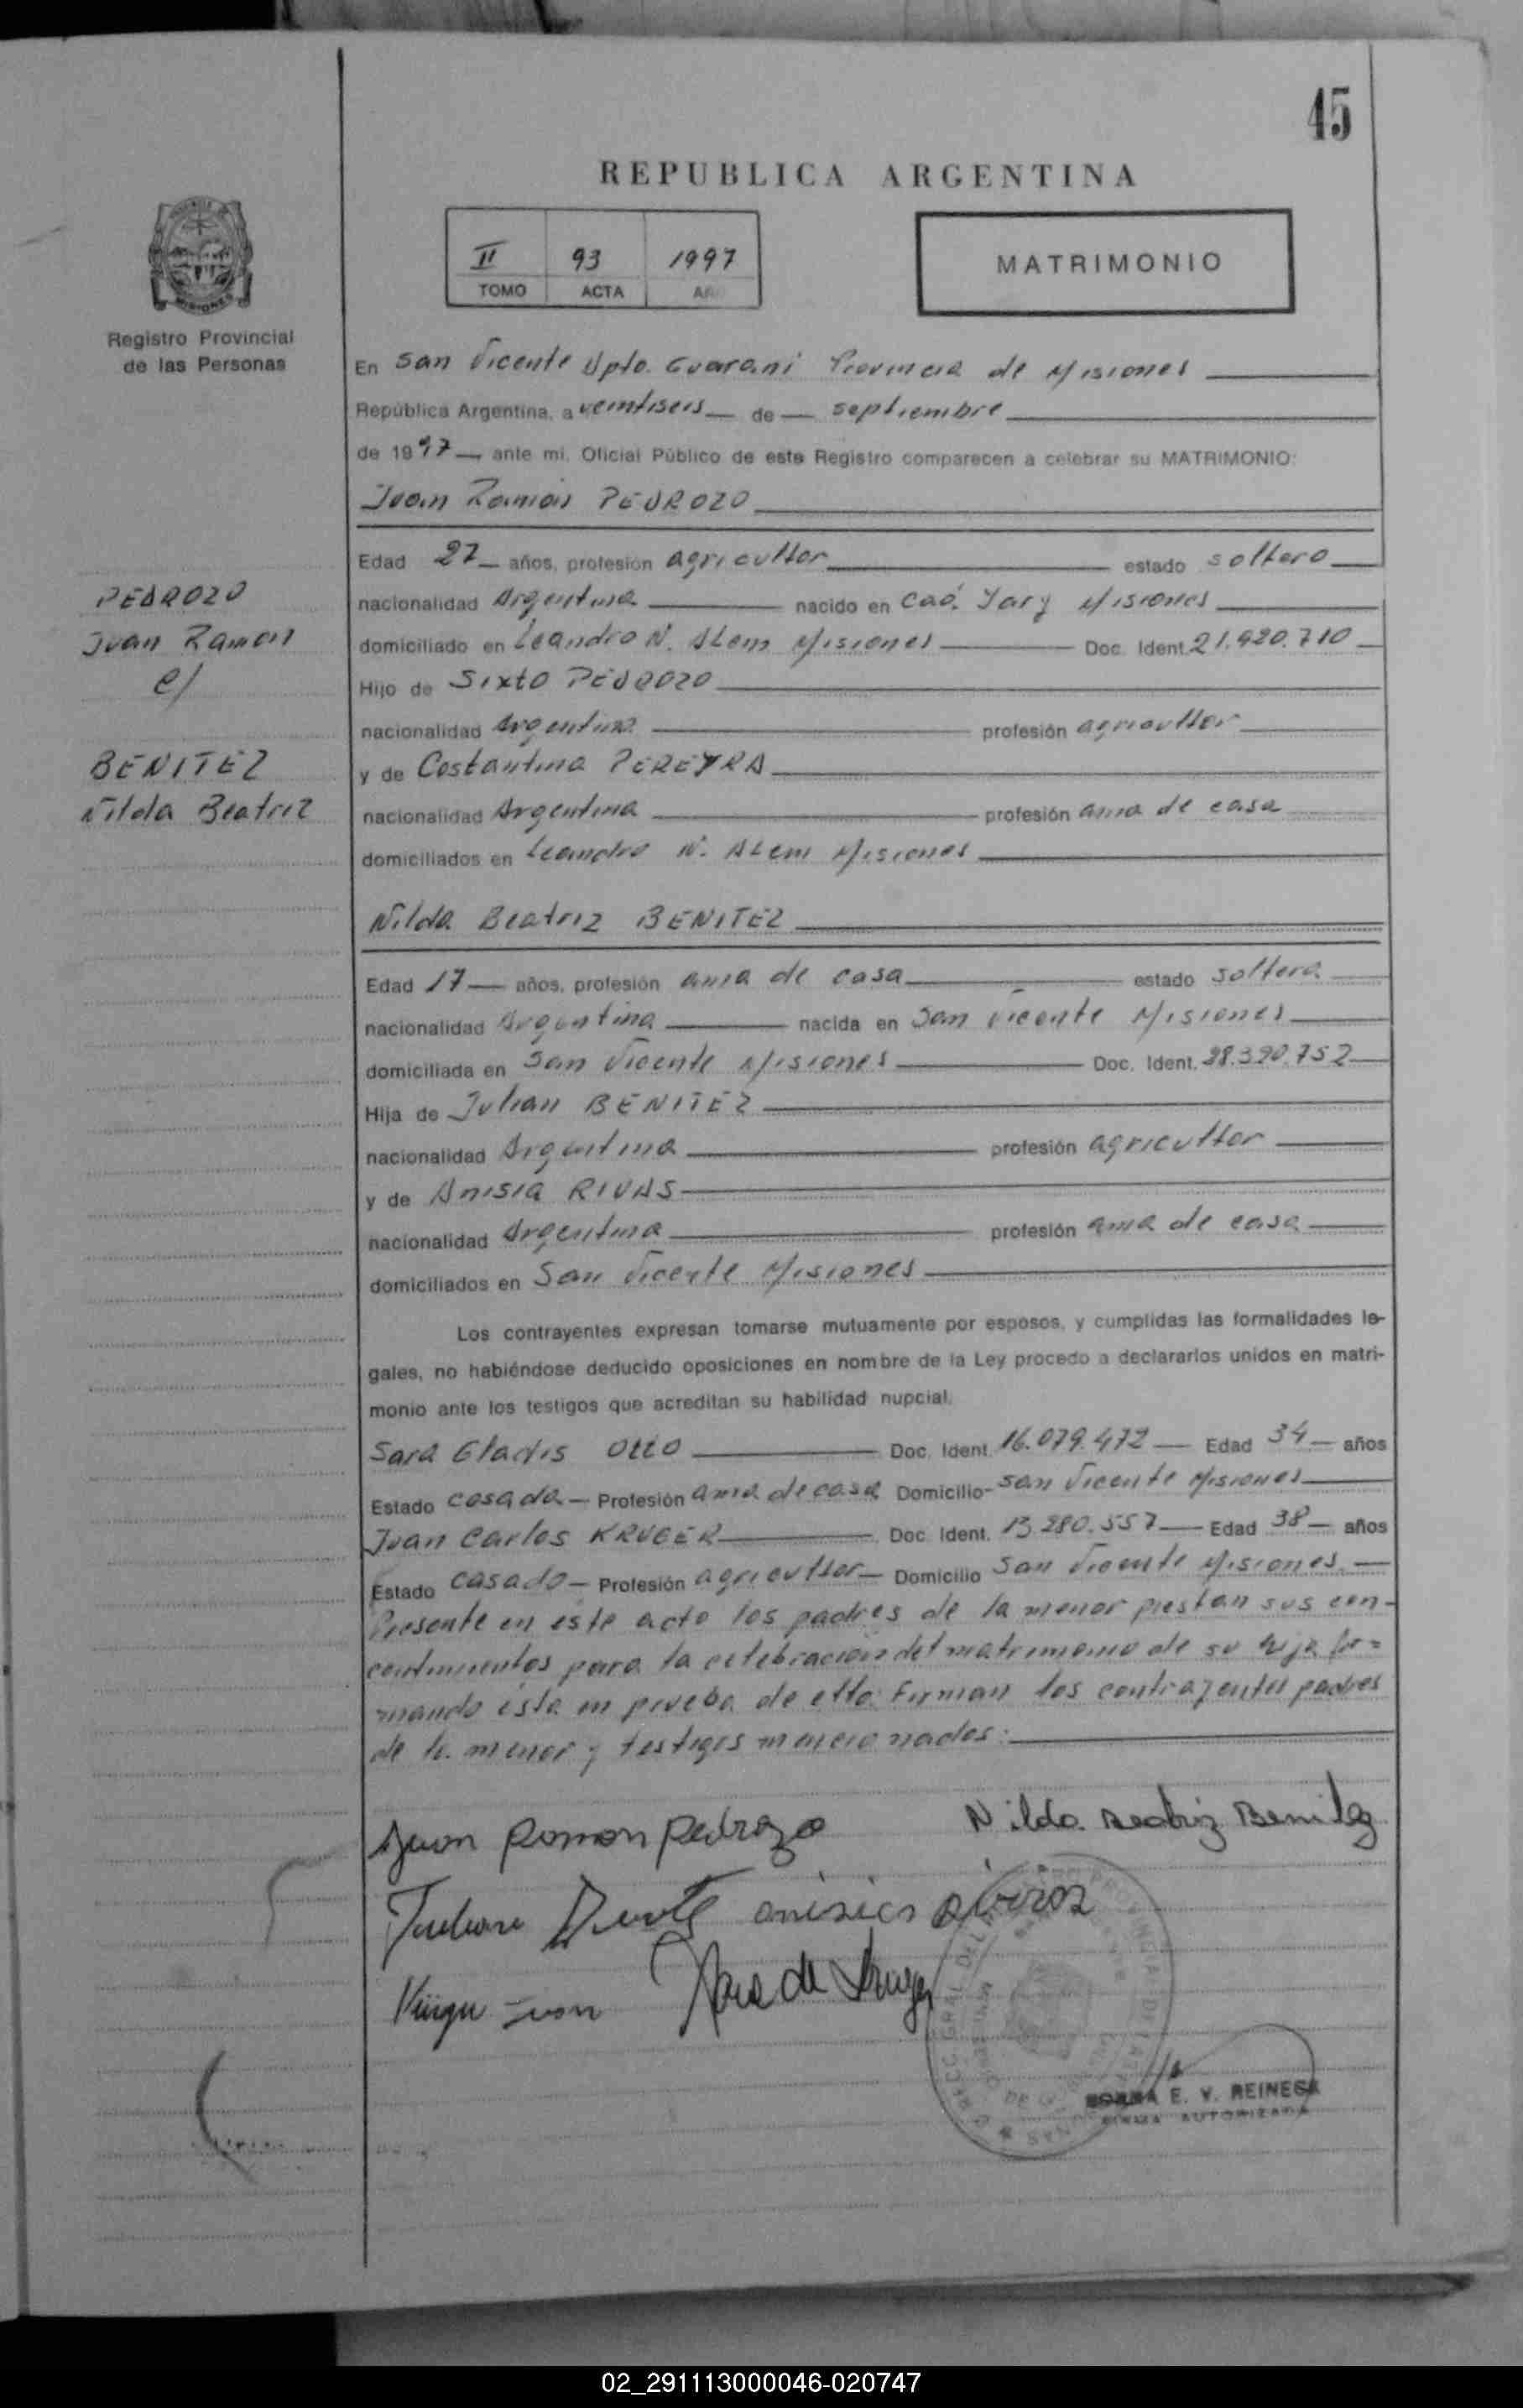 45
REPUBLICA ARGENTINA
II 93 1997
TOMO ACTA AÑO
MATRIMONIO
Registro Provincial
de las Personas
PEDROZO
Juan Ramon
c/
BENITEZ
Nilda Beatriz
En San Vicente Dpto. Guarani Provincia de Misiones
República Argentina, a veintiseis de septiembre
de 1997 ante mí, Oficial Público de este Registro comparecen a celebrar su MATRIMONIO:
Juan Ramón PEDROZO
Edad 27 años, profesión agricultor estado soltero
nacionalidad Argentina nacido en Caá Yary Misiones
domiciliado en Leandro N. ALem Misiones Doc. Ident. 21.920.710
Hijo de Sixto PEDROZO
nacionalidad Argentina profesión agricultor
y de Costantina PEREYRA
nacionalidad Argentina profesión ama de casa
domiciliados en Leandro N. ALem Misiones
Nilda Beatriz BENITEZ
Edad 17 años, profesión ama de casa estado soltera
nacionalidad Argentina nacida en San Vicente Misiones
domiciliada en San Vicente Misiones Doc. Ident. 28.390.752
Hija de Julian BENITEZ
nacionalidad Argentina profesión agricultor
y de Anisia RIVAS
nacionalidad Argentina profesión ama de casa
domiciliados en San Vicente Misiones
Los contrayentes expresan tomarse mutuamente por esposos, y cumplidas las formalidades le-
gales, no habiéndose deducido oposiciones en nombre de la Ley procedo a declararlos unidos en matri-
monio ante los testigos que acreditan su habilidad nupcial.
Sara Gladis OTTO Doc. Ident. 16.079.472 Edad 34 años
Estado casada Profesión ama de casa Domicilio San Vicente Misiones
Juan Carlos KRUGER Doc. Ident. 13.280.557 Edad 38 años
Estado casado Profesión agricultor Domicilio San Vicente Misiones.
Presente en este acto los padres de la menor prestan sus con-
centimientos para la celebración del matrimonio de su hija fir=
mando ésta en prueba de ello. Firman los contrayentes padres
de la menor y testigos mencionados:
Juan Ramon Pedrozo Nilda Beatriz Benitez
anisia
Juan
de Kruger
E. V. REINESA
FIRMA AUTORIZADA
02_291113000046-020747